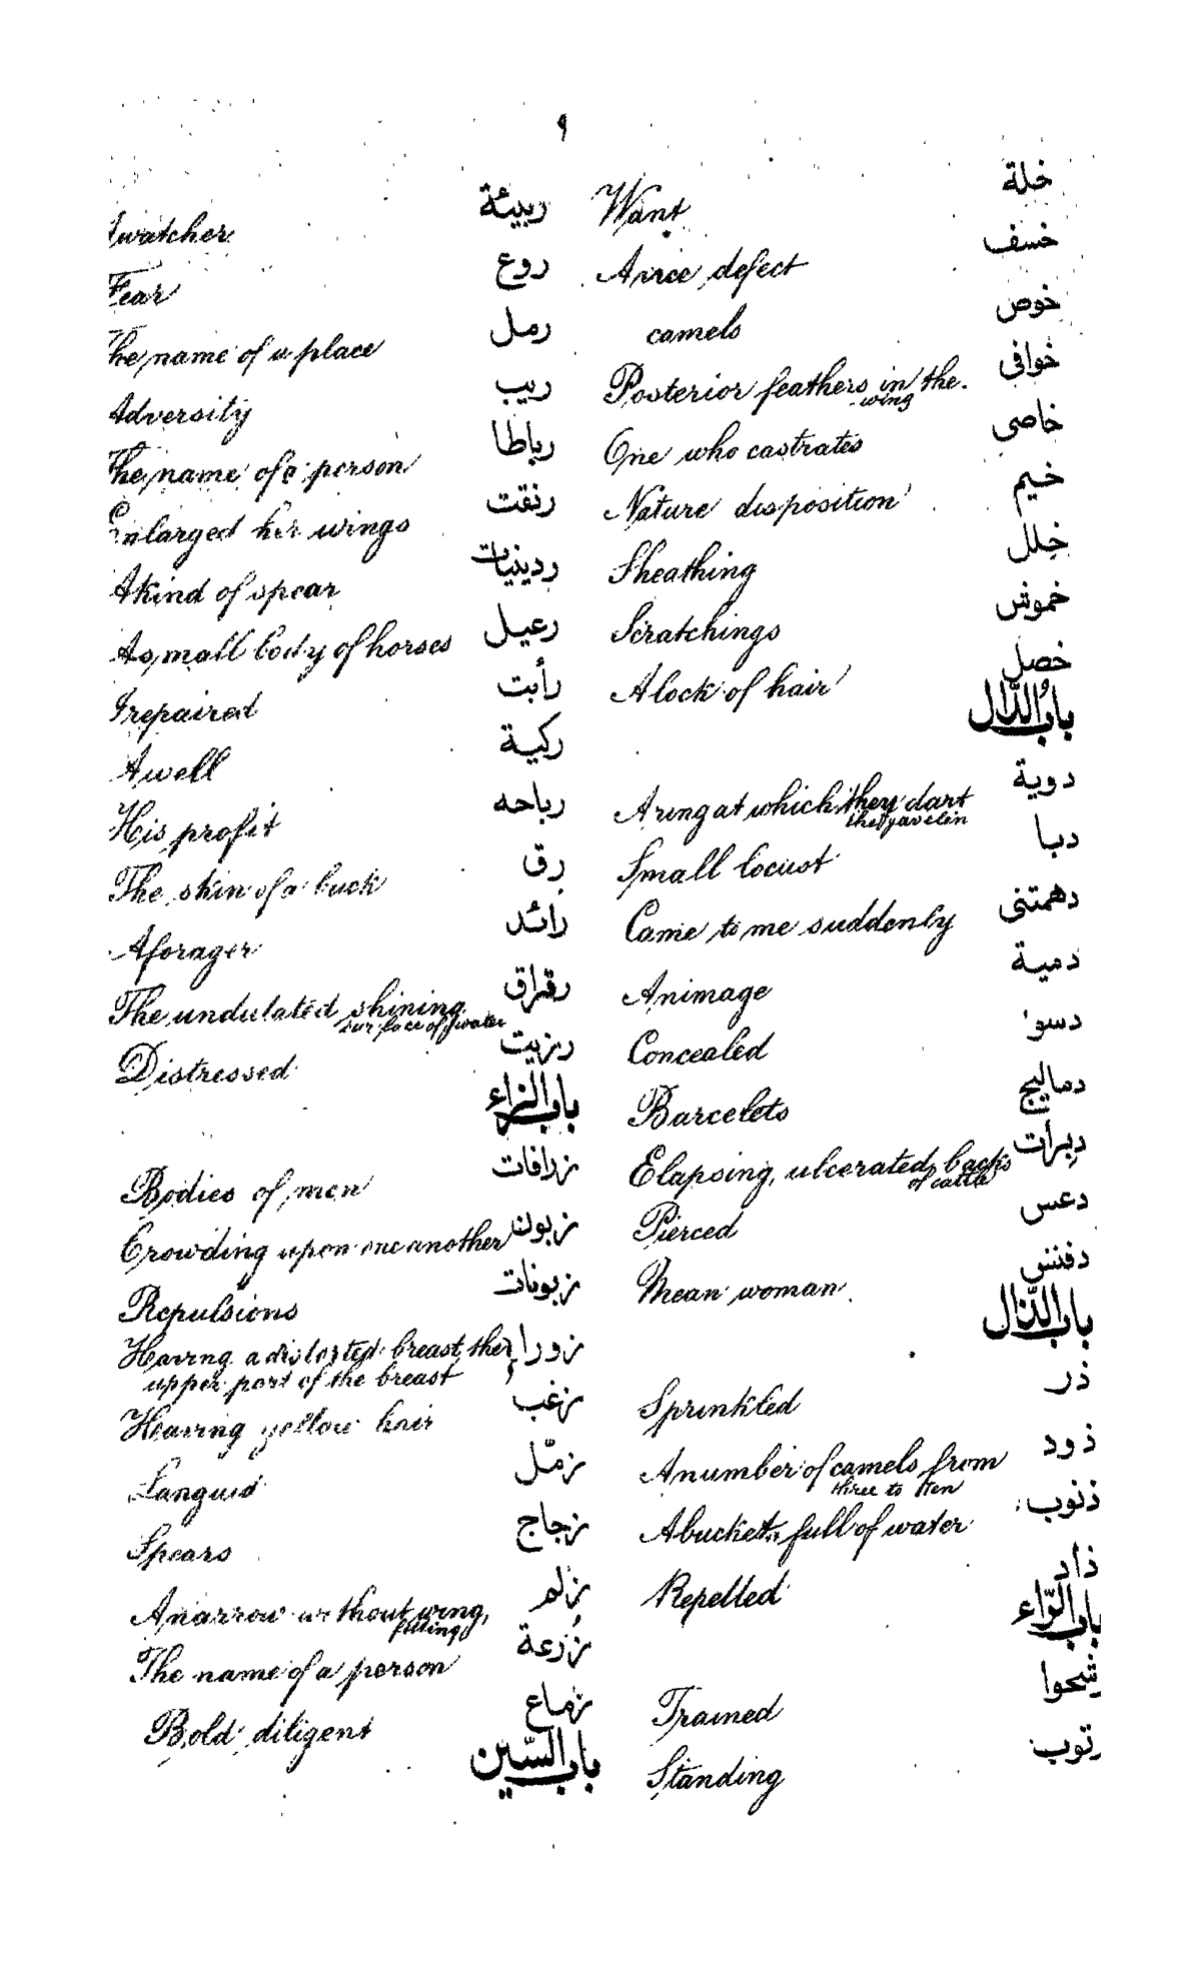 ٩
خلة Want
خسف A vice defect
خوص camels
خوافى Posterior feathers in the wing
خاصى One who castrates
خيم Nature disposition
خلل Sheathing
خموش Scratchings
خصل A lock of hair
باب الدّال
دوية A ring at which they dart the javelin
دبا Small locust
دهمتنى Came to me suddenly
دمية An image
دسو Concealed
دماليج Barcelets
دبرات Elapsing, ulcerated backs of cattle
دعس Pierced
دفنس Mean woman
باب الذّال
ذر Sprinkled
ذود A number of camels from three to ten
ذنوب A bucket full of water
ذاد Repelled
باب الرّاء
رشحوا Trained
رتوب Standing
ربيئة A watcher
روع Fear
رمل The name of a place
ريب Adversity
رباطا The name of a person
رنقت Enlarged her wings
ردينيات A kind of spear
رعيل A small body of horses
رأبت I repaired
ركية A well
رباحه His profit
رق The skin of a buck
رائد A forager
رقراق The undulated shining surface of water
رزيت Distressed
باب الزاء
زرافات Bodies of men
زبون Crowding upon one another
زبونات Repulsions
زورا Having a distorted breast, the upper part of the breast
زغب Having yellow hair
زمّل Languid
زجاج Spears
زلم An arrow without wing,
زرعة The name of a person
زماع Bold diligent
باب السّين